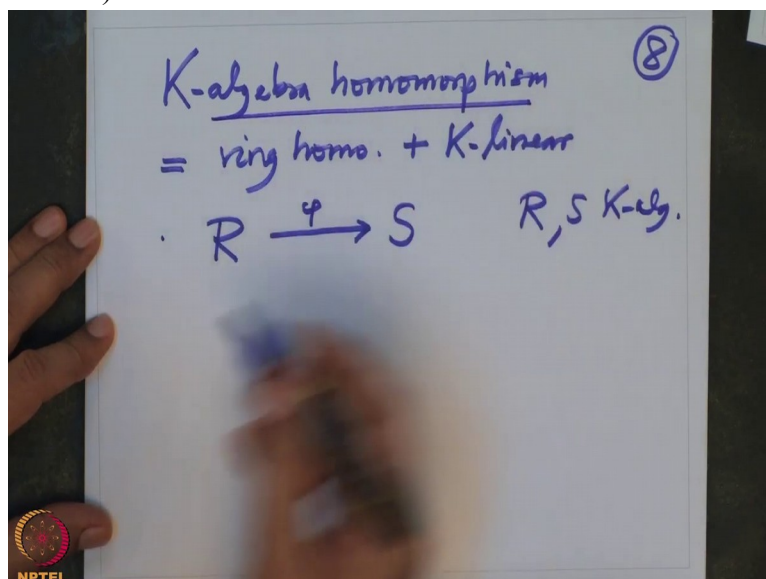 )
⑧
K-algebra homomorphism
= ring homo. + K-linear
. R —φ→ S R, S K-alg.
NPTEL